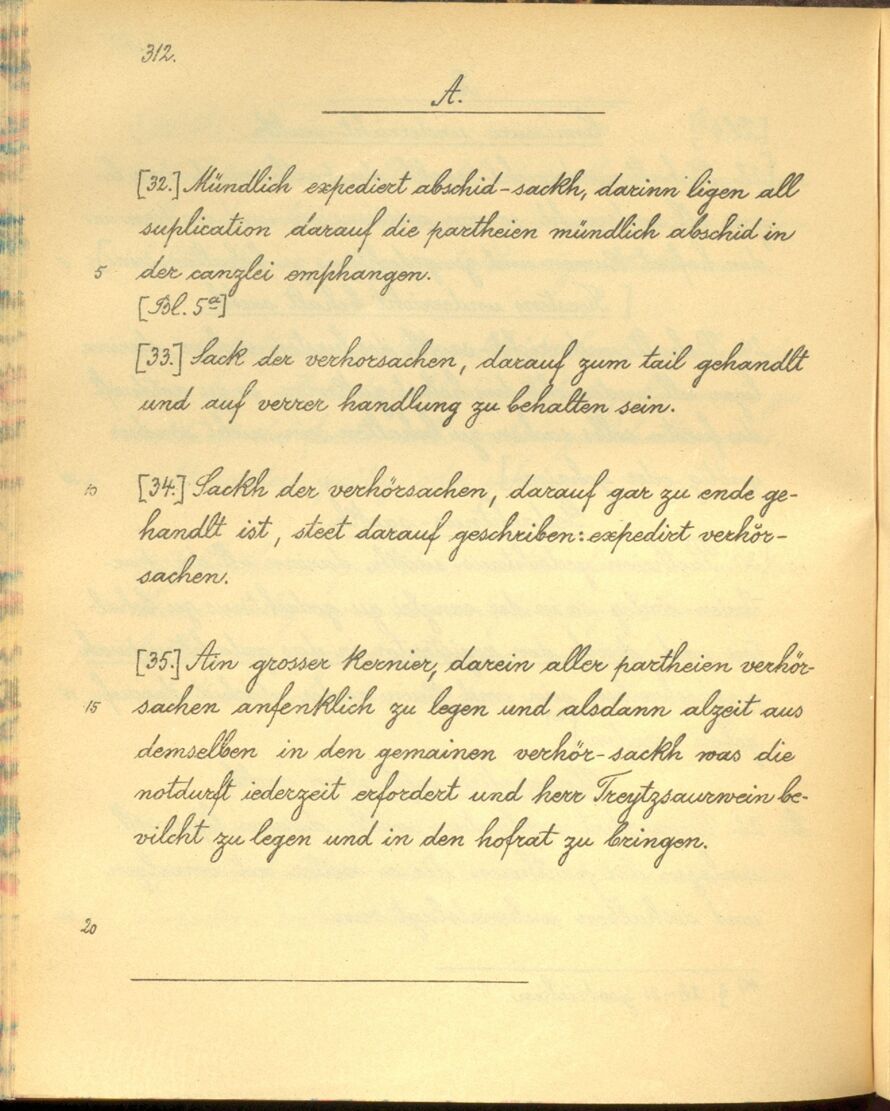 312.
A.
[32.] Mündlich expediert abschid-sackh, darinn ligen all
suplication darauf die partheien mündlich abschid in
5 der canzlei emphangen.
[Bl. 5a]
[33.] Sack der verhorsachen, darauf zum tail gehandlt
und auf verrer handlung zu behalten sein.
10 [34.] Sackh der verhörsachen, darauf gar zu ende ge-
handlt ist, steet darauf geschriben: expedirt verhör-
sachen.
[35.] Ain grosser Kernier, darein aller partheien verhör-
15 sachen anfenklich zu legen und alsdann alzeit aus
demselben in den gemainen verhör-sackh was die
notdurft iederzeit erfordert und herr Treytzsaurwein be-
vilcht zu legen und in den hofrat zu bringen.
20